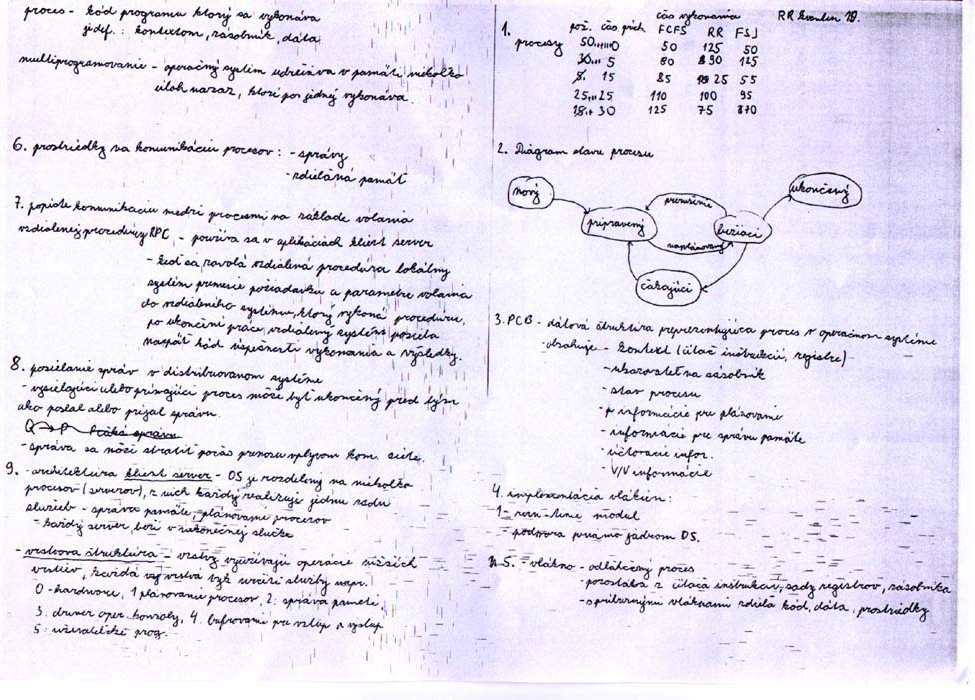 proces - kód programu ktorý sa vykonáva
jedef.: kontextom, zásobník, dáta
multiprogramovanie - operačný systém udržiava v pamäti niekoľko
úloh naraz, ktoré po jednej vykonáva.
6. prostriedky na komunikáciu procesov: - správy
- zdieľaná pamäť
7. popíšte komunikáciu medzi procesmi na základe volania
vzdialenej procedúry RPC - používa sa v aplikáciách klient server
- keď sa zavolá vzdialená procedúra lokálny
systém prenesie požiadavku a parametre volania
do vzdialeného systému, ktorý vykoná procedúru,
po ukončení práce vzdialený systém posiela
naspäť kód úspešnosti vykonania a výsledky.
8. posielanie správ v distribuovanom systéme
- vysielajúci alebo prijímajúci proces može byť ukončený pred tým
ako poslal alebo prijal správu.
Q → P čaká správu
- správa sa môže stratiť počas prenosu vplyvom kom. siete.
9. - architektúra klient server - OS je rozdelený na niekoľko
procesov (serverov), z nich každý realizuje jednu sadu
služieb - správa pamäte, plánovanie procesov
- každý server beží v nekonečnej slučke
- vrstvova štruktúra - vrstvy využívajú operácie nižších
vrstiev, každá vrstva vyš. určité služby napr.
0 - hardware, 1 plánovanie procesor, 2. správa pameti,
3. driver oper. konzoly, 4. bufrovanie pre vstup a výstup
5. uživateľské prog.
1.
čas vykonania RR kvantum 10.
pož. čas prích FCFS RR FSJ
procesy 50 0 50 125 50
30 5 80 90 125
5 15 85 25 55
25 25 110 100 95
15 30 125 75 70
2. Diagram stavu procesu
nový
ukončený
prerušenie
pripravený
bežiaci
naplánovaný
čakajúci
3. PCB - dátová štruktúra reprezentujúca proces v operačnom systéme
- obsahuje - kontext (čítač inštrukcií, registre)
- ukazovateľ na zásobník
- stav procesu
- informácie pre plánovanie
- informácie pre správu pamäte
- účtovacie infor.
- V/V informácie
4. implementácia vlákien:
1- run-time modul
- podpora priamo jadrom OS.
5. - vlákno - odľahčený proces
- pozostáva z čítača inštrukcií, sady registrov, zásobníka
- s príbuznými vláknami zdieľa kód, dáta, prostriedky